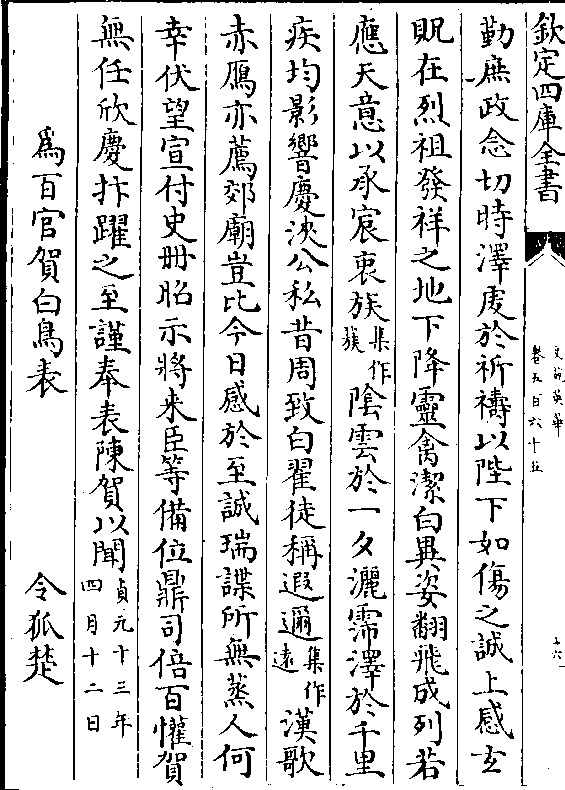 欽定四庫全書
文苑英華
卷五百六十五
十六
勤庶政念切時澤處於祈禱以陛下如傷之誠上感玄
貺在烈祖發祥之地下降靈禽潔白異姿翻飛成列若
應天意以承宸衷族集作簇陰雲於一夕灑霈澤於千里
疾均影響慶浹公私昔周致白翟徒稱遐邇集作遠漢歌
赤鴈亦薦郊廟豈比今日感於至誠瑞諜所無蒸人何
幸伏望宣付史冊昭示將来臣等備位鼎司倍百懽賀
無任欣慶抃躍之至謹奉表陳賀以聞貞元十三年四月十二日
爲百官賀白鳥表 令狐楚